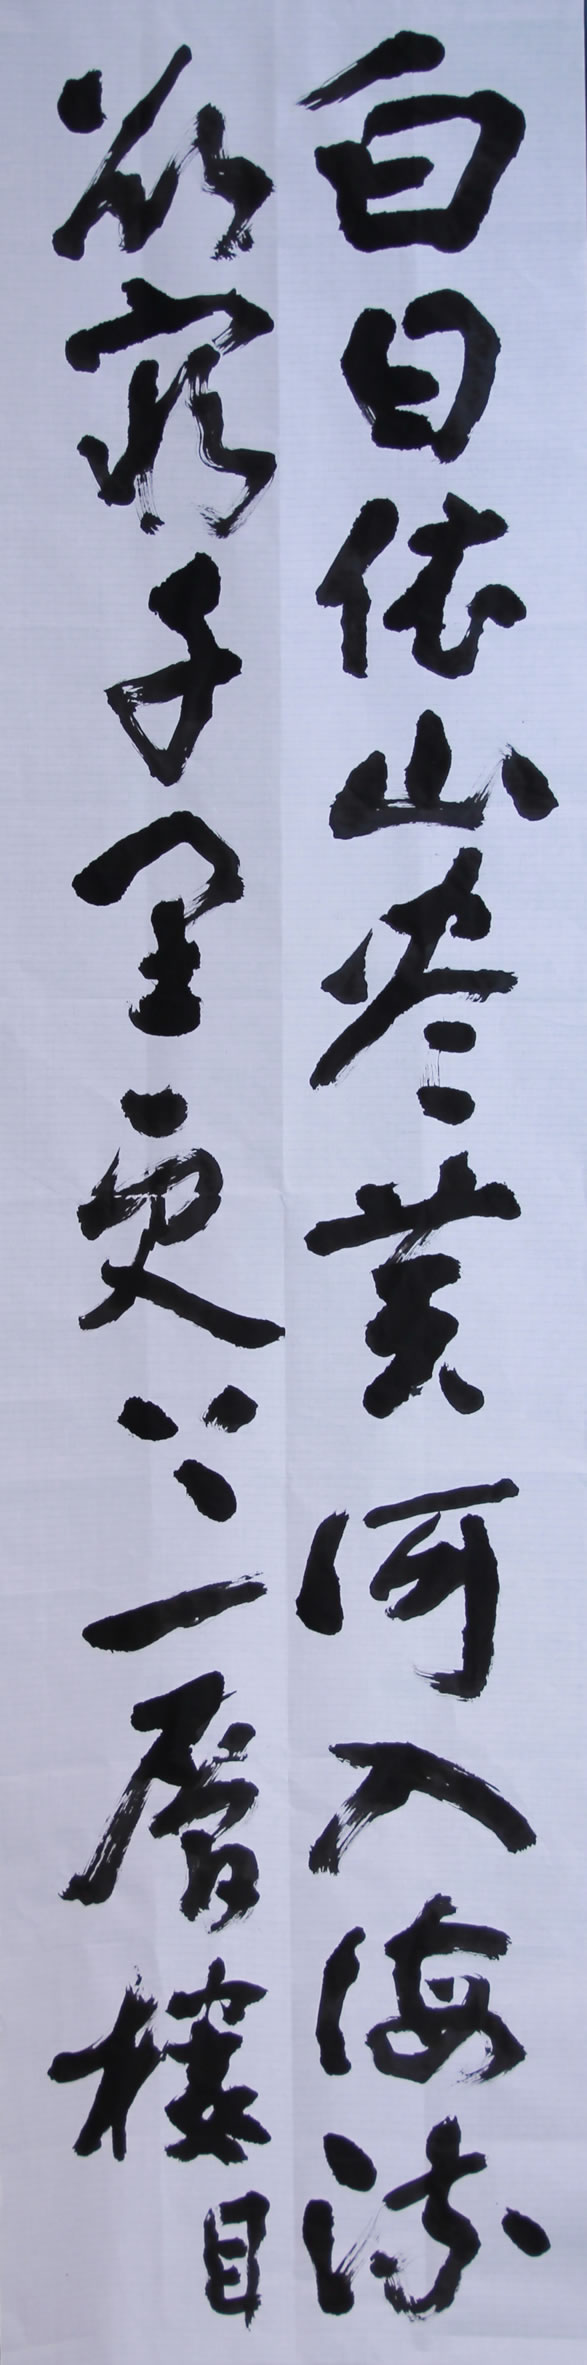 白日依山尽黄河入海流
欲窮千里更上一層樓目